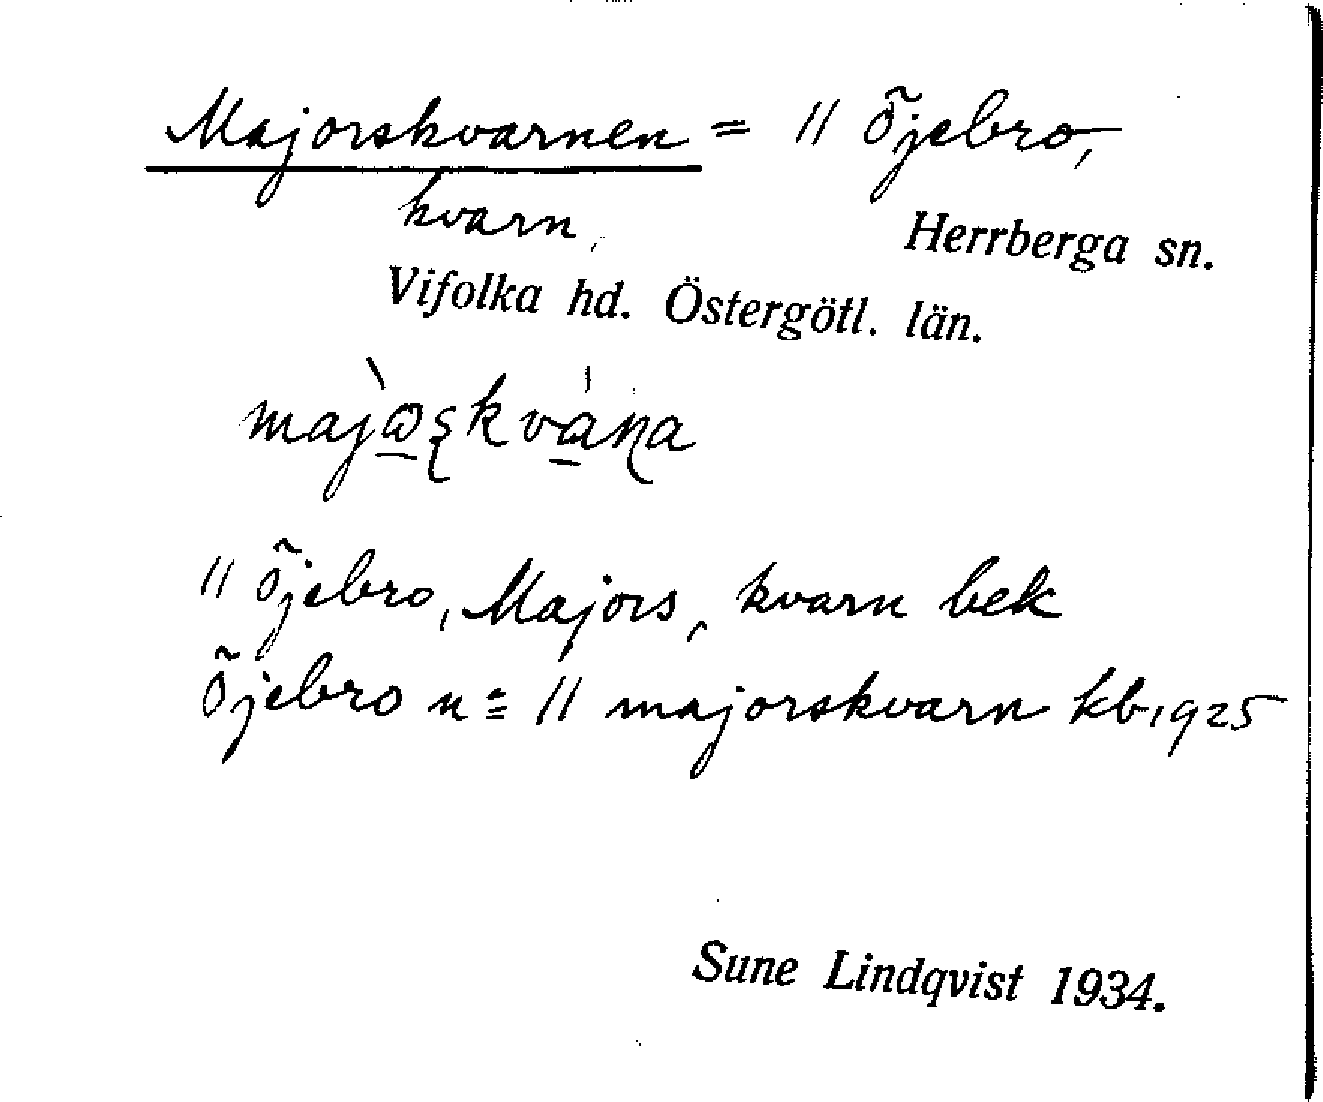 Majorskvarnen = // Öjebro,
kvarn, Herrberga sn.
Vifolka hd. Östergötl. län.
// Öjebro, Majors, kvarn bek
Öjebro n = // majorskvarn kb 1925
Sune Lindqvist 1934.